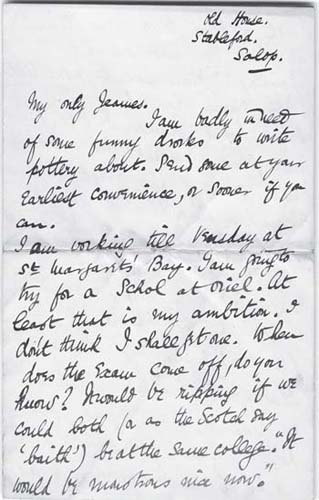 Old House.
Stableford.
Salop.
My only Jeames.
I am badly in need
of some funny drorks to write
pottery about. Send some at your
Earliest convenience, or sooner if you
can.
I am working till Vensday at
St Margarets' Bay. I am going to
try for a Schol at Oriel. At
least that is my ambition. I
don't think I shall get one. When
does the Exam come off, do you
know? It would be ripping if we
could both (or as the Scotch say
'baith') be at the same college. "It
would be monstrous nice now."